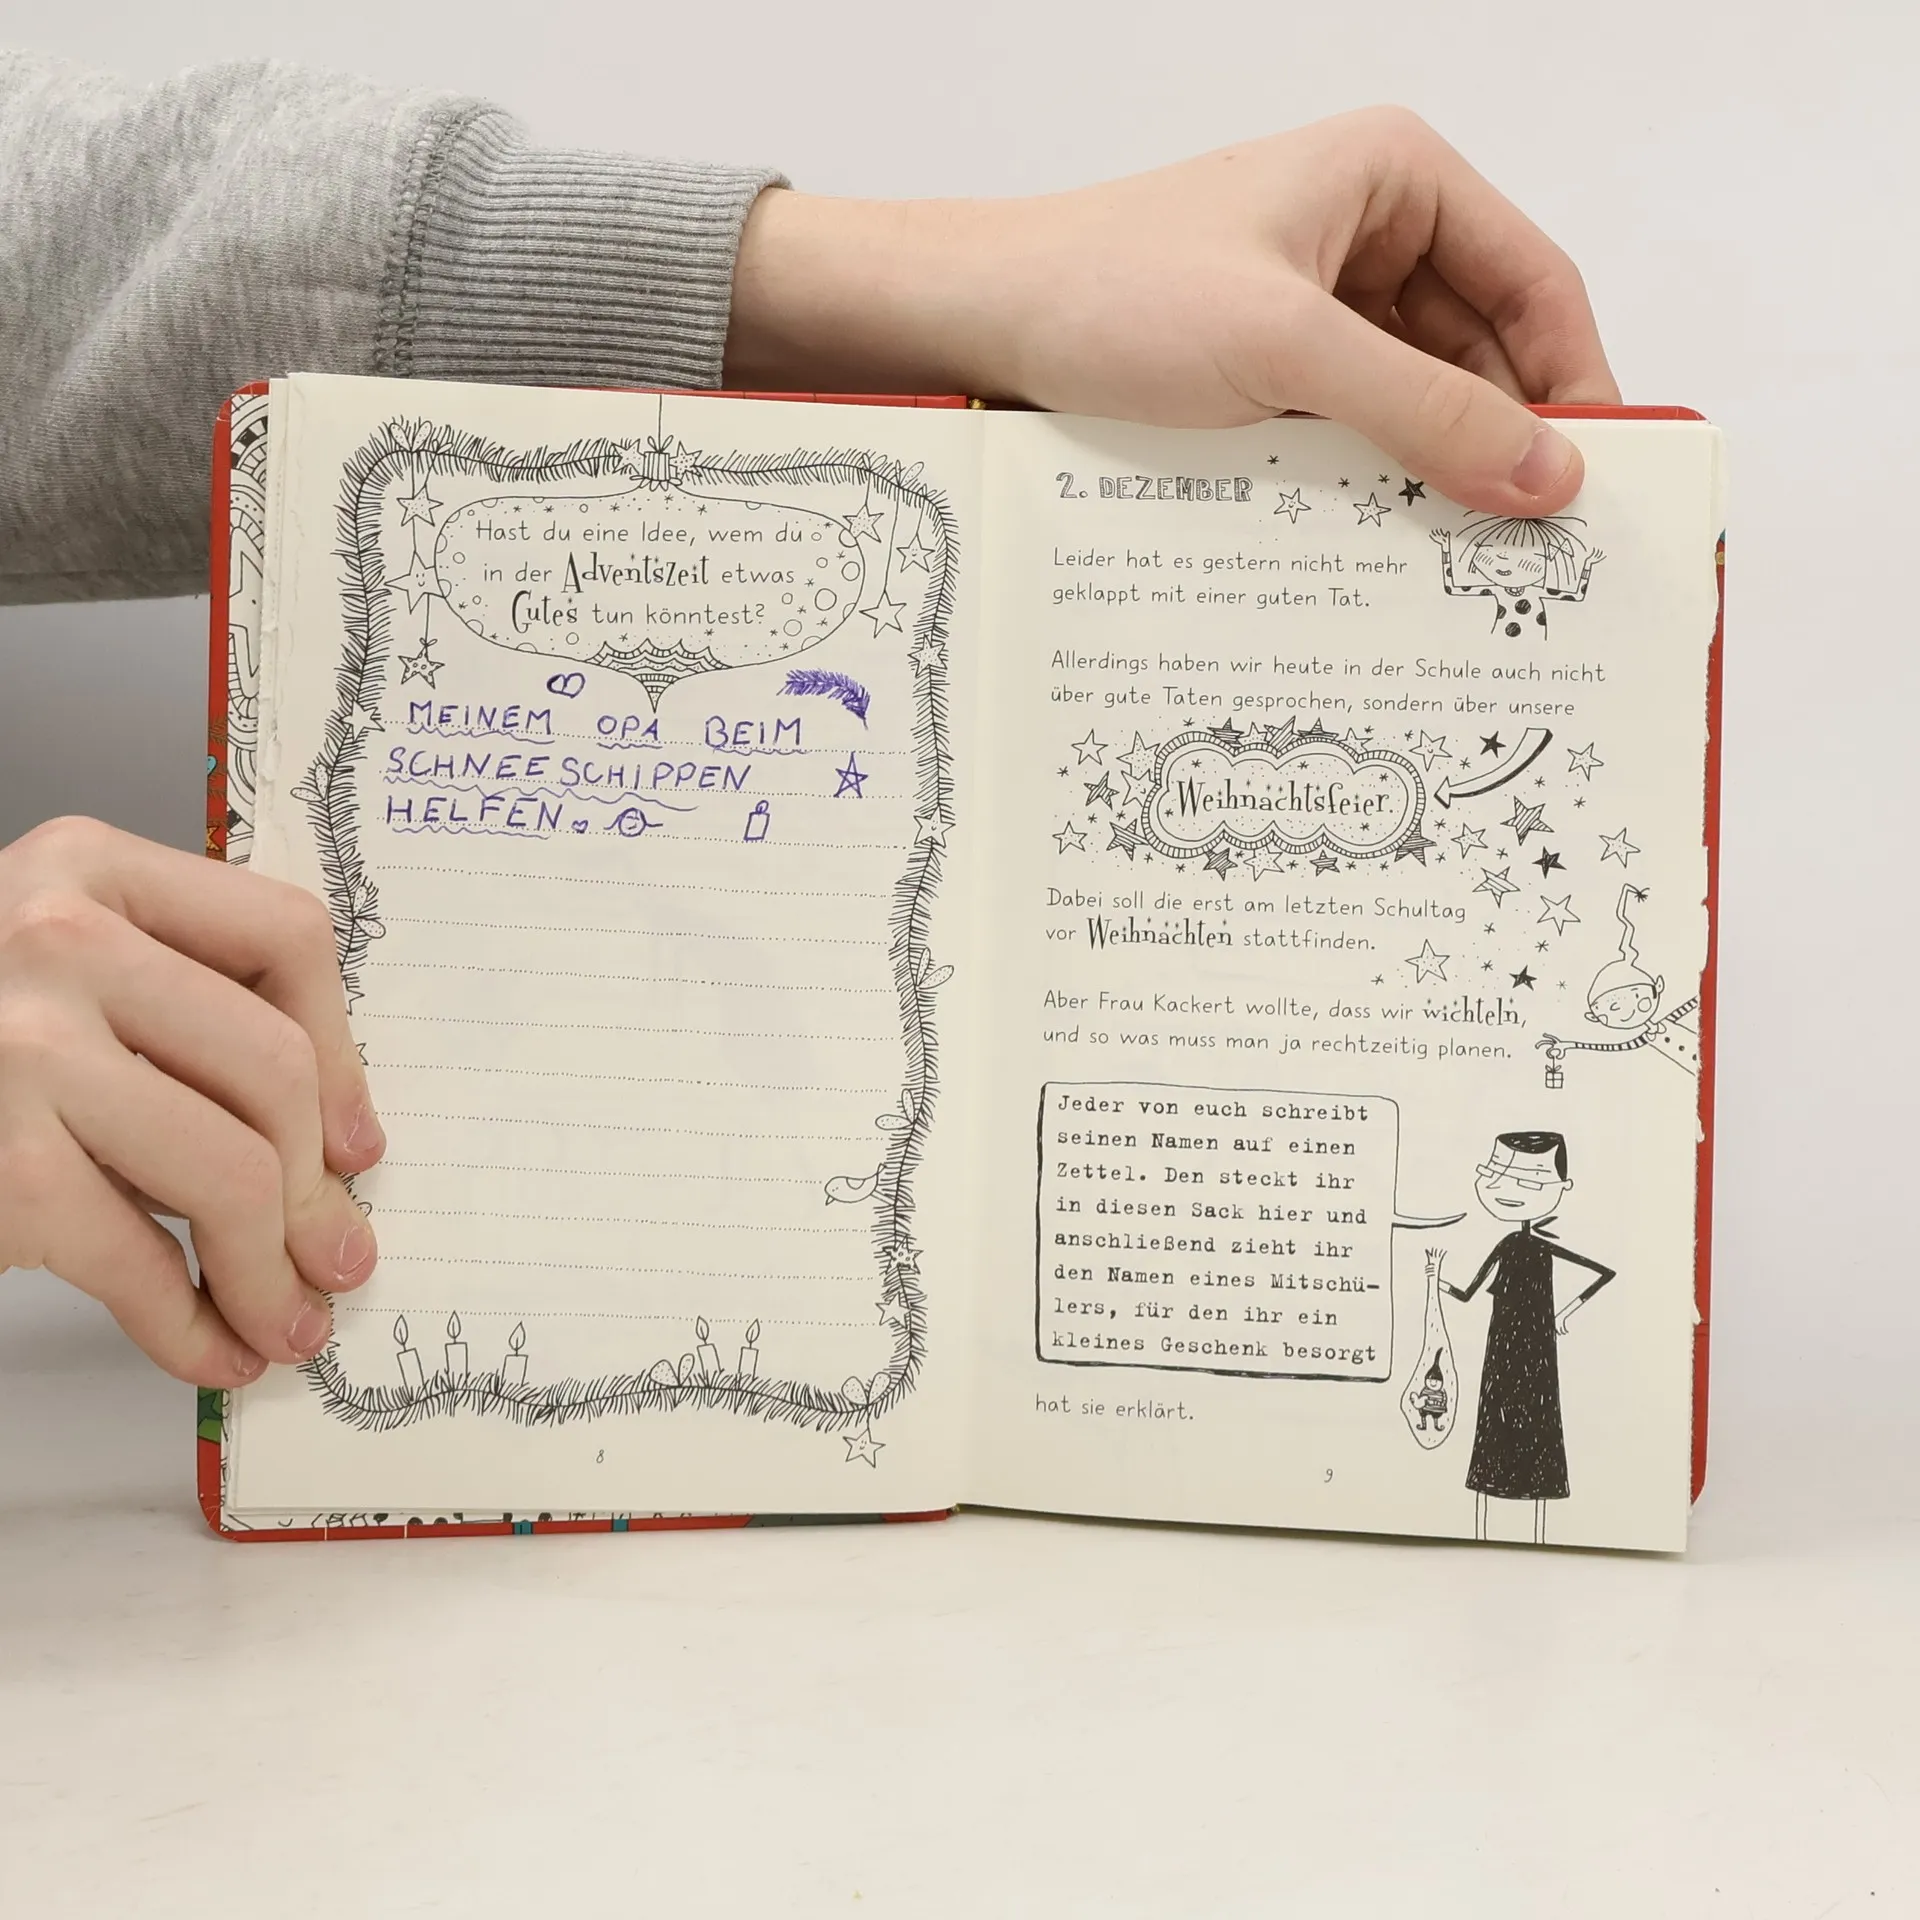 Hast du eine Idee, wem du
in der Adventszeit etwas
Gutes tun könntest?
MEINEM OPA BEIM
SCHNEE SCHIPPEN
HELFEN.
8
2. DEZEMBER
Leider hat es gestern nicht mehr
geklappt mit einer guten Tat.
Allerdings haben wir heute in der Schule auch nicht
über gute Taten gesprochen, sondern über unsere
Weihnachtsfeier.
Dabei soll die erst am letzten Schultag
vor Weihnachten stattfinden.
Aber Frau Kackert wollte, dass wir wichteln,
und so was muss man ja rechtzeitig planen.
Jeder von euch schreibt
seinen Namen auf einen
Zettel. Den steckt ihr
in diesen Sack hier und
anschließend zieht ihr
den Namen eines Mitschü-
lers, für den ihr ein
kleines Geschenk besorgt
hat sie erklärt.
9